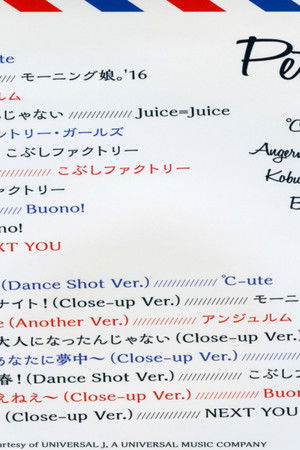 Pe
-ute
モーニング娘。'16
ルム
じゃない Juice=Juice
ントリー・ガールズ
こぶしファクトリー
こぶしファクトリー
ァクトリー
Buono!
no!
XT YOU
℃
Angerm
Kobu
B
(Dance Shot Ver.) ℃-ute
ナイト! (Close-up Ver.) モーニ
e (Another Ver.) アンジュルム
大人になったんじゃない (Close-up Ver.)
あなたに夢中〜 (Close-up Ver.)
春! (Dance Shot Ver.) こぶしフ
えねえ〜 (Close-up Ver.) Buon
(Close-up Ver.) NEXT YOU
urtesy of UNIVERSAL J, A UNIVERSAL MUSIC COMPANY